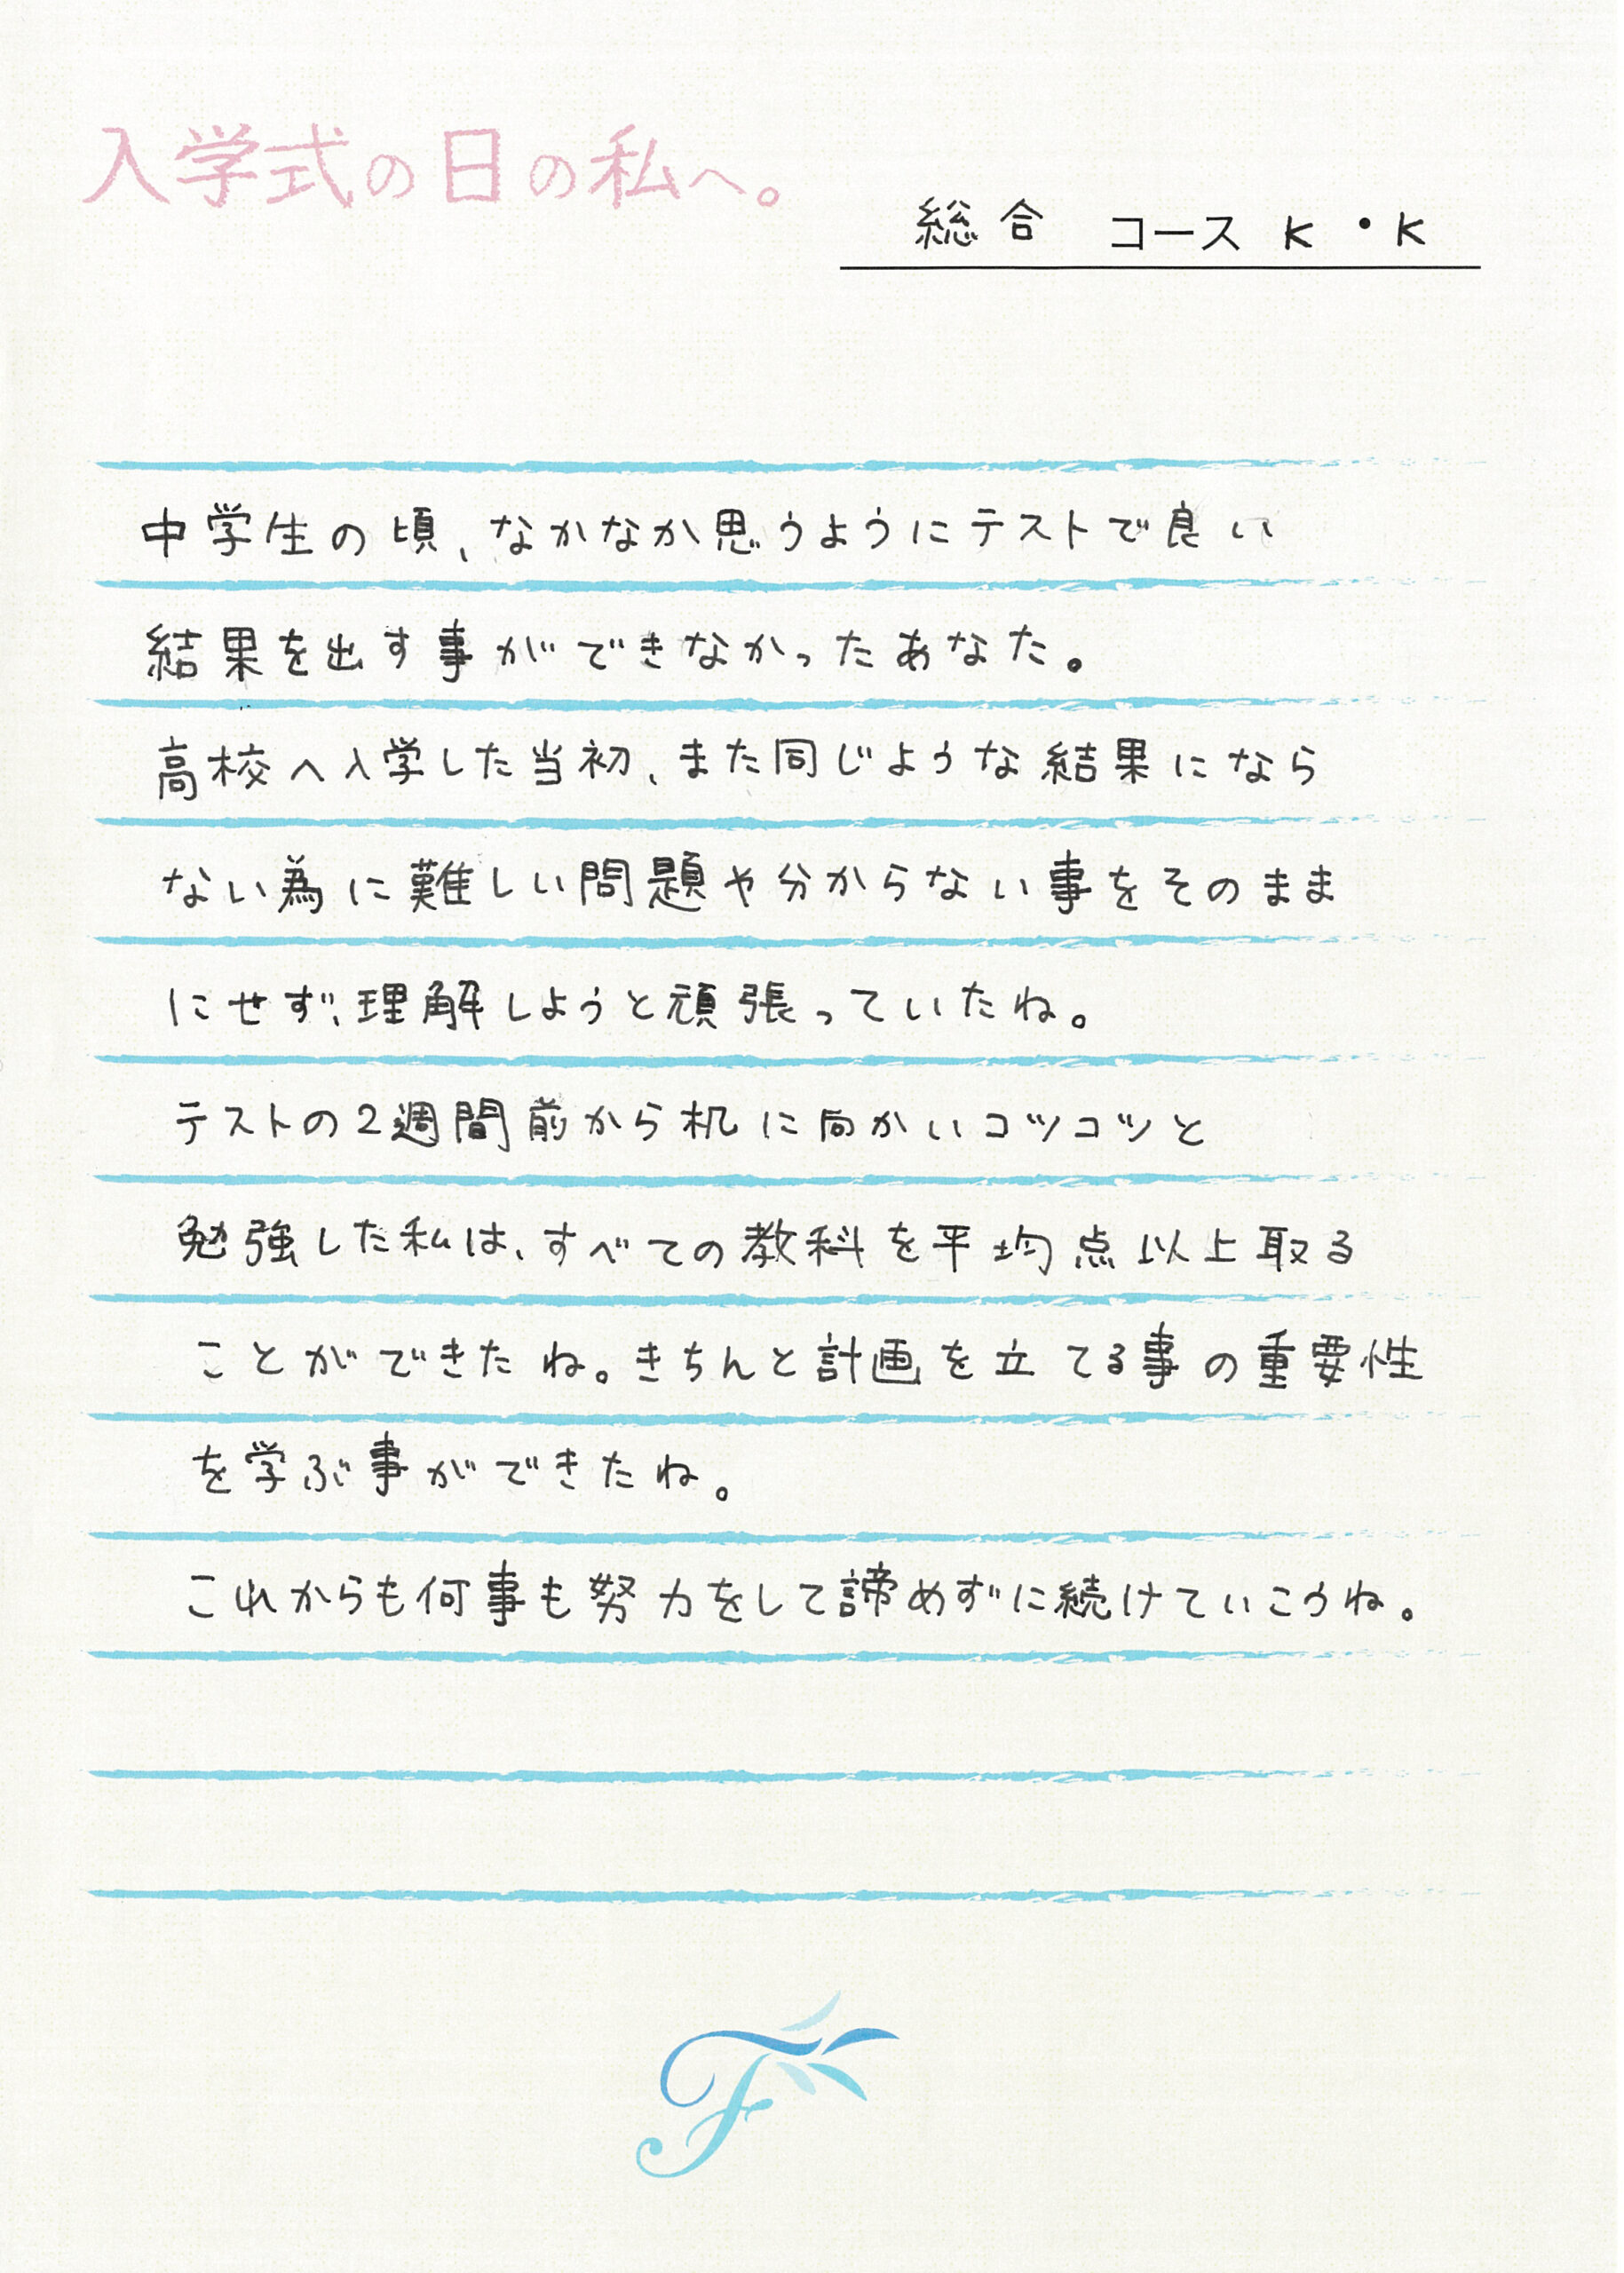 入学式の日の私へ。
総合 コース K・K
中学生の頃、なかなか思うようにテストで良い
結果を出す事ができなかったあなた。
高校へ入学した当初、また同じような結果になら
ない為に難しい問題や分からない事をそのまま
にせず、理解しようと頑張っていたね。
テストの2週間前から机に向かいコツコツと
勉強した私は、すべての教科を平均点以上取る
ことができたね。きちんと計画を立てる事の重要性
を学ぶ事ができたね。
これからも何事も努力をして諦めずに続けていこうね。
F